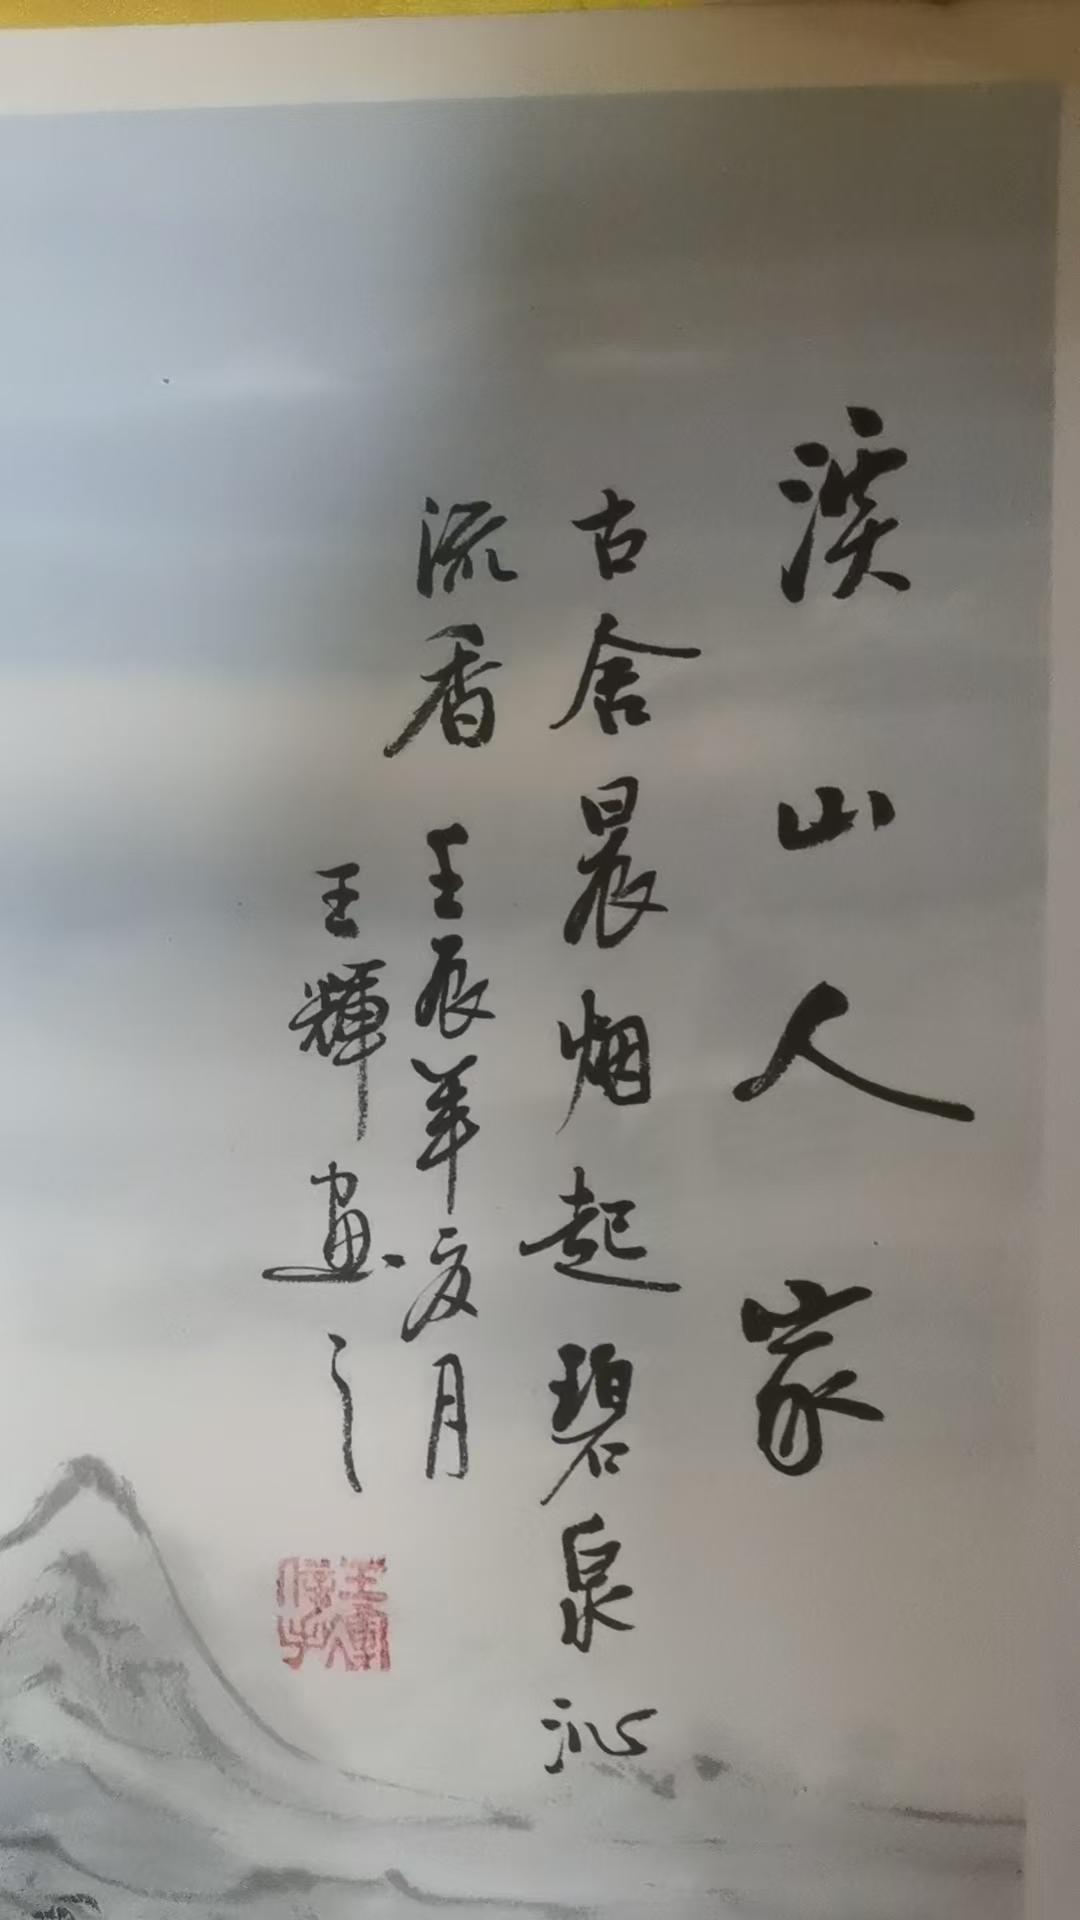 溪山人家
古舍晨烟起碧泉沁
流香 壬辰年夏月
王輝画之